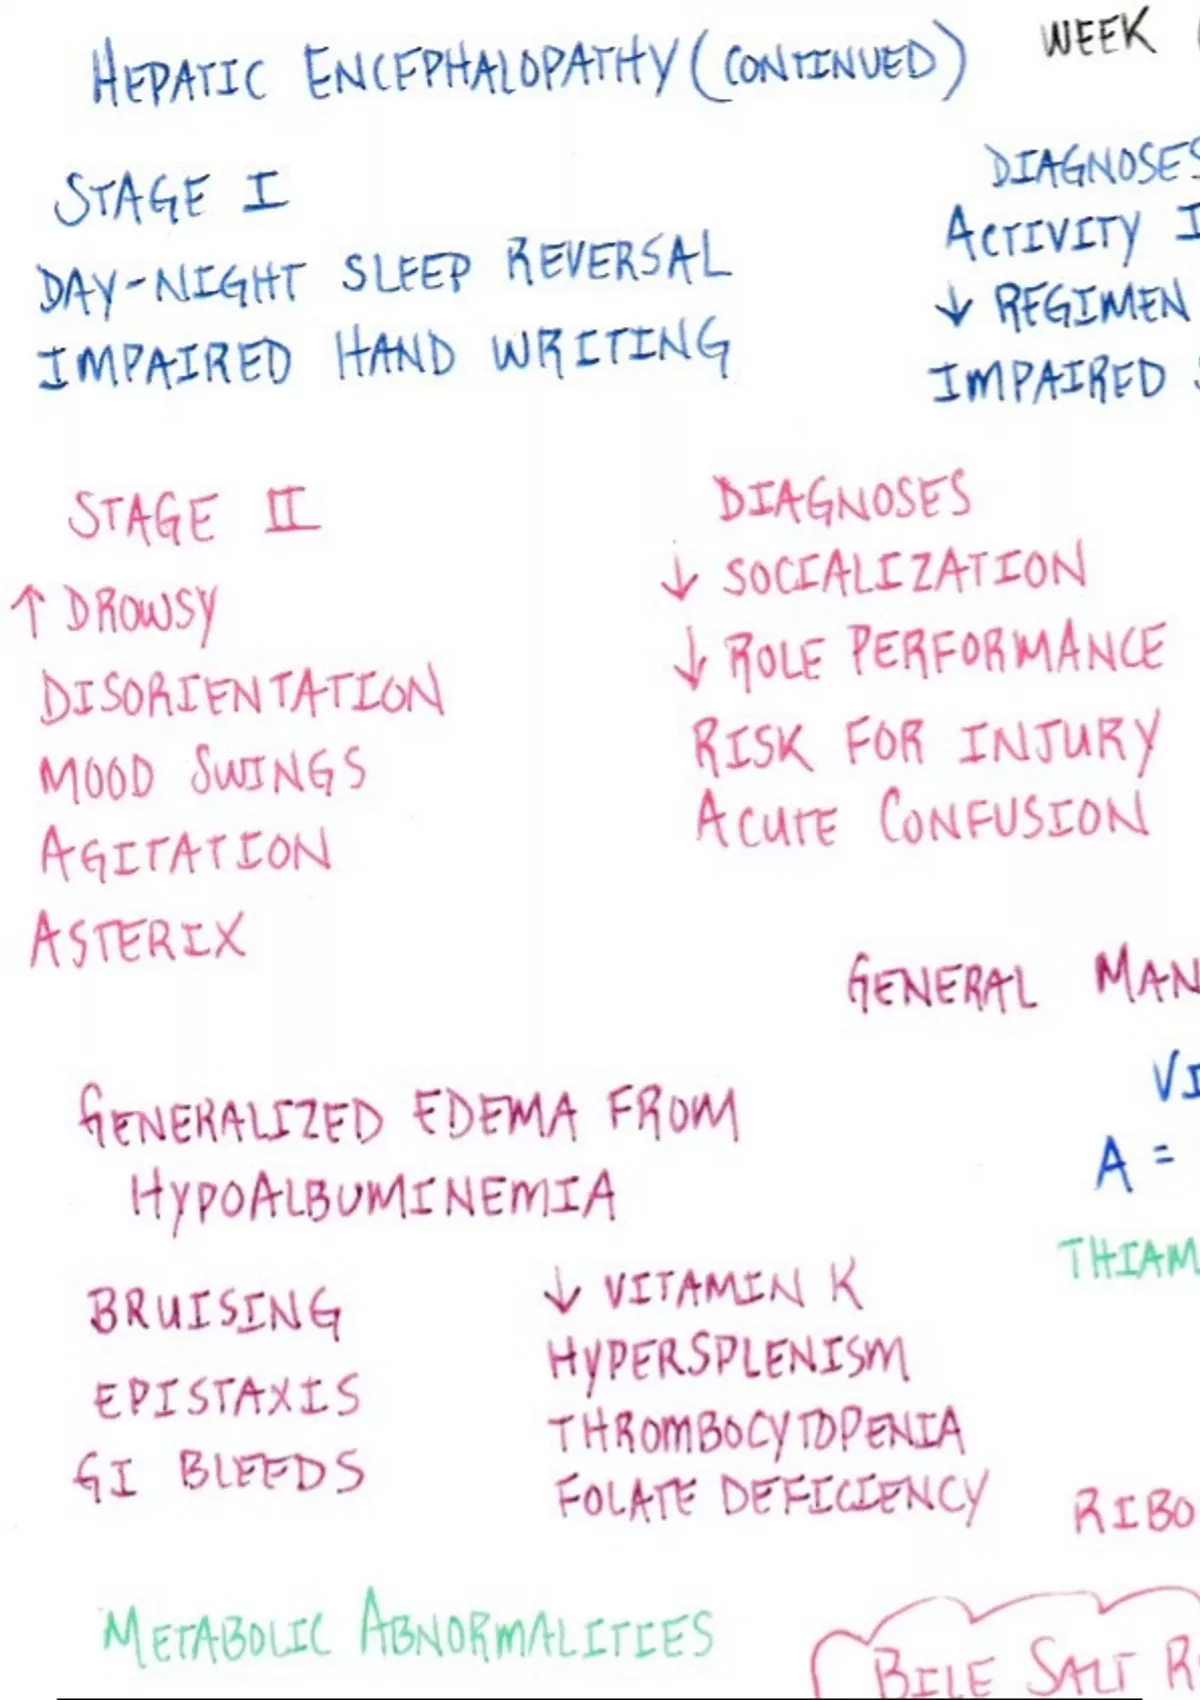 HEPATIC ENCEPHALOPATHY (CONTINUED)
WEEK
STAGE I
DAY-NIGHT SLEEP REVERSAL
IMPAIRED HAND WRITING
DIAGNOSES
ACTIVITY
↓ REGIMEN
IMPAIRED
STAGE II
↑ DROWSY
DISORIENTATION
MOOD SWINGS
AGITATION
ASTERIX
DIAGNOSES
↓ SOCIALIZATION
↓ ROLE PERFORMANCE
RISK FOR INJURY
ACUTE CONFUSION
GENERAL MAN
GENERALIZED EDEMA FROM
HYPOALBUMINEMIA
BRUISING
EPISTAXIS
GI BLEEDS
↓ VITAMIN K
HYPERSPLENISM
THROMBOCYTOPENIA
FOLATE DEFICIENCY
VI
A =
THIAM
RIBO
METABOLIC ABNORMALITIES
BILE SALT